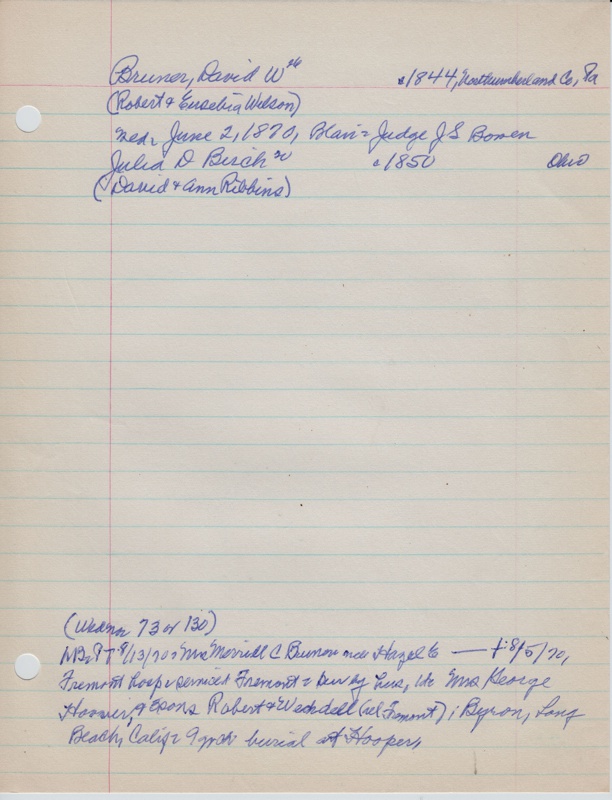 Bruner, David W c1844, Northumberland Co, Pa
(Robert & Eusebia Wilson)
June 2, 1870, Blair = Judge J S Bowen
Julia D c1850 Ohio
(David & Ann Ribbins)
73 or 130)
8/13/70 = Mrs Merrill C Bruner nee Hazel E — 8/5/70,
Fremont hosp = services Fremont = surv by Mrs George
Hoover, & sons Robert & (all Fremont); Byron, Long
Beach, Calif = burial at Hooper